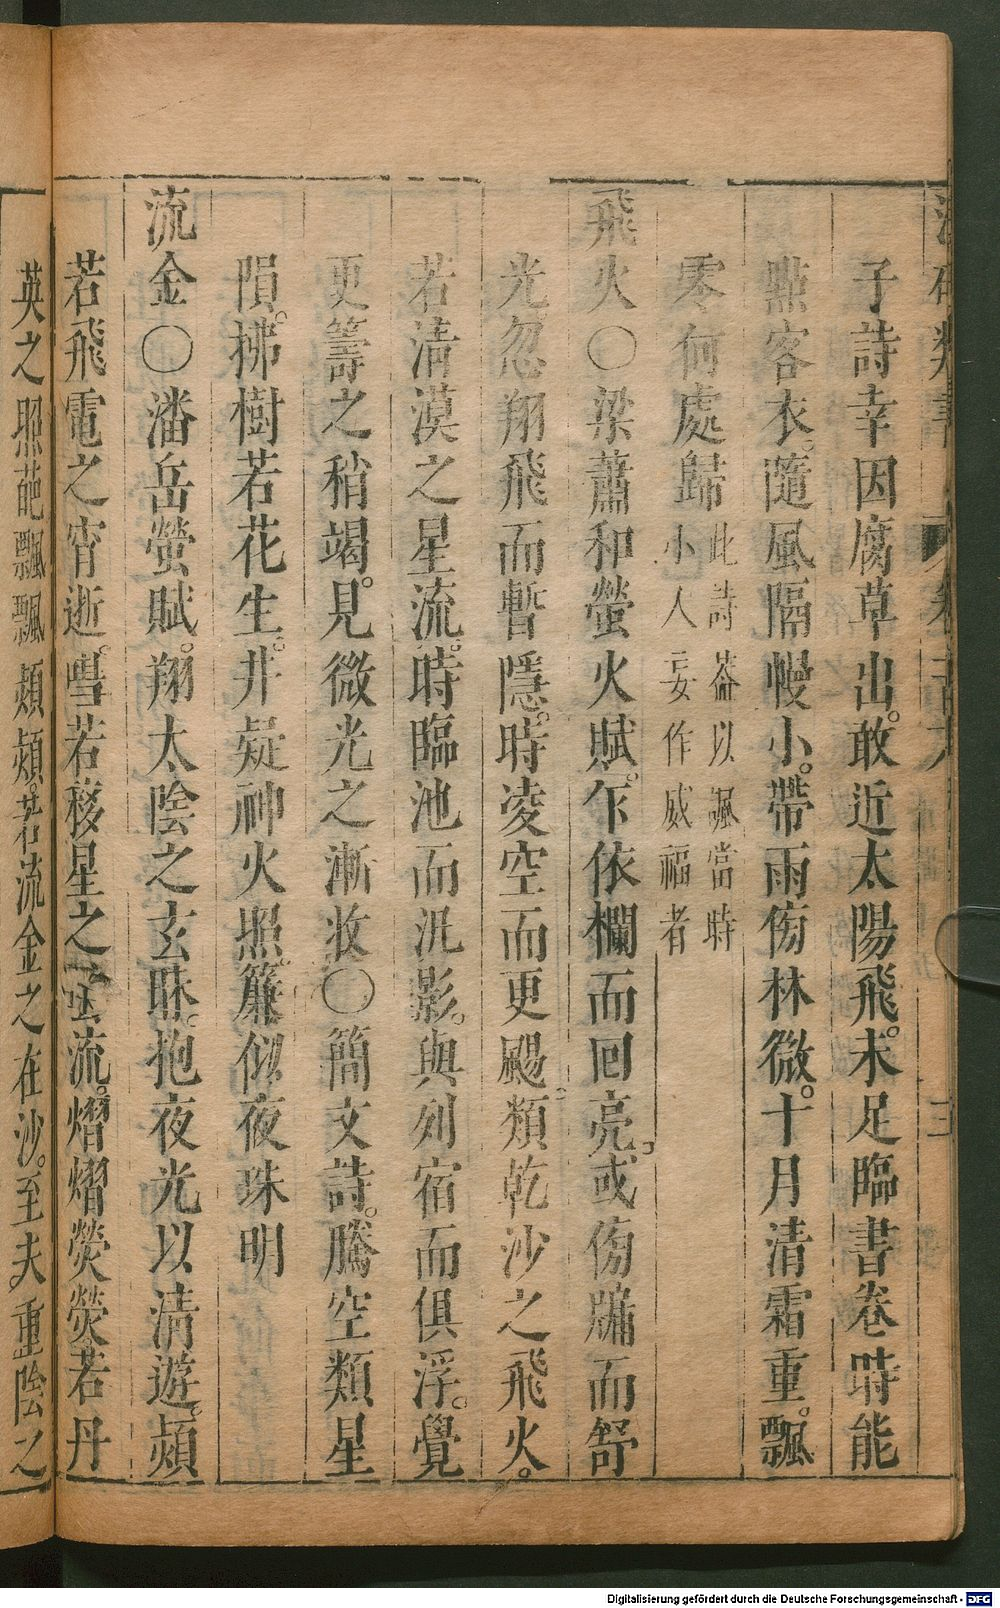 子詩幸因腐草出。敢近太陽飛。未足臨書卷時能
點客衣。隨風隔幔小。帶雨傍林微。十月清霜重。飄
零何處歸
此詩葢以諷當時
小人妄作威福者
飛火○梁蕭和螢火賦。乍依欄而回亮。或傍牖而舒
光忽翔飛而暫隱。時凌空而更颺。類乾沙之飛火。
若清漠之星流。時臨池而汎影。與列宿而俱浮。覺
更籌之稍竭。見微光之漸收○簡文詩。騰空類星
隕。拂樹若花生。井疑神火照。簾似夜珠明
流金○潘岳螢賦。翔太陰之玄昧。抱夜光以清遊。熲
若飛電之宵逝。嘒若移星之雲流。熠熠熒熒若丹
英之照葩飄飄熲熲。若流金之在沙。至夫重陰之
Digitalisierung gefördert durch die Deutsche Forschungsgemeinschaft - DFG